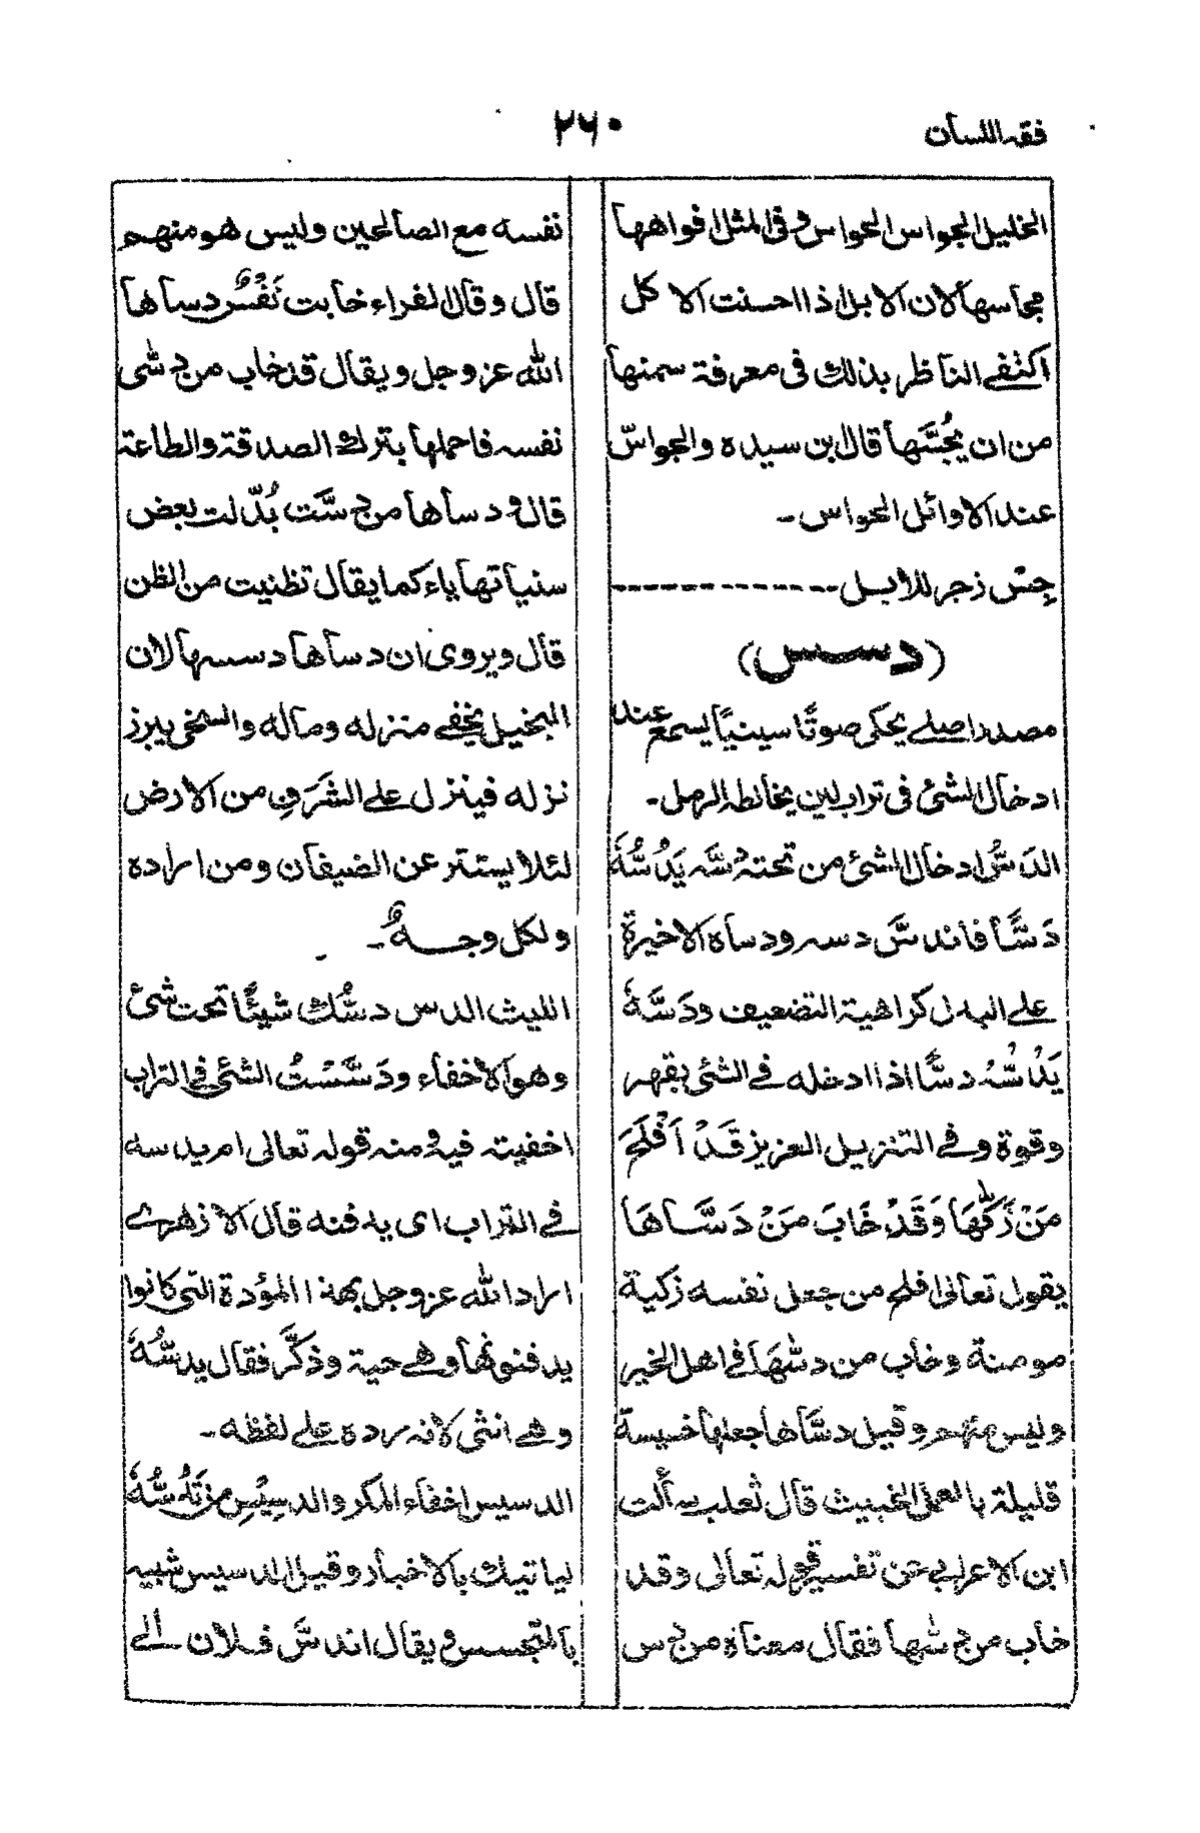 فقه اللسان
۲۶۰
الخليل الجواس الحواس وفى المثل افواهها
مجاسها لان الابل اذا احسنت الاكل
اكتفى الناظر بذلك فى معرفة سمنها
من ان يجُسَّها قال ابن سيده والجواسّ
عند الاوائل الحواس۔
جِسْ زجر للابل ------------
(دسس)
مصدر اصلے يحكى صوتًا سينيًا يسمع عند
ادخال الشئ فى تراب لين يخالطه الرمل۔
الدَسُّ ادخال الشئ من تحته دسَّه يَدُسُّهٗ
دَسًّا فاندسَّ دسه ودساه الاخيرة
علے البدل كراهية التضعيف ودَسَّهٗ
يَدُسُّهٗ دسًّا اذا ادخله فے الشئ بقهر
وقوة وفے التنزيل العزيز قَدْ اَفْلَحَ
مَنْ زَكّٰهَا وَقَدْ خَابَ مَنْ دَسَّاهَا
يقول تعالى افلح من جعل نفسه زكية
مومنة وخاب من دسّٰهَا فے اهل الخير
وليس منهم وقيل دسَّاها جعلها خسيسة
قليلة بالعمل الخبيث قال ثعلب سألت
ابن الاعرابى عن تفسير قوله تعالى وقد
خاب من دسّٰها فقال معناه من دس
نفسه مع الصالحين وليس هو منهم
قال وقال الفراء خابت نَفْسٌ دساها
الله عزوجل ويقال قد خاب من دسّٰى
نفسه فاخملها بترك الصدقة والطاعة
قال ودساها من دسَّت بُدّلت بعض
سنياتها ياء كما يقال تظنيت من الظن
قال ويروى ان دساها دسسها لان
البخيل يخفے منزله وماله والسخى يبرز
نزله فينزل علے الشَرَفِ من الارض
لئلا يستتر عن الضيفان ومن اراده
ولكل وجهٌ۔
الليث الدس دسُّك شيئًا تحت شئ
وهو الاخفاء ودَسَّسْتُ الشئ فے التراب
اخفيته فيه ومنه قوله تعالى ام يدسه
فے التراب اى يدفنه قال الازهرے
اراد الله عزوجل بهذا المؤدة التى كانوا
يدفنونها وهے حية وذكَّر فقال يدسُّهٗ
وهے انثى لانه رده علے لفظه۔
الدسيس اخفاء المكر والدسِيْسِ من تَدُسُّهٗ
لياتيك بالاخبار وقيل الدسيس شبيه
بالتجسس ويقال اندسَّ فلان الے